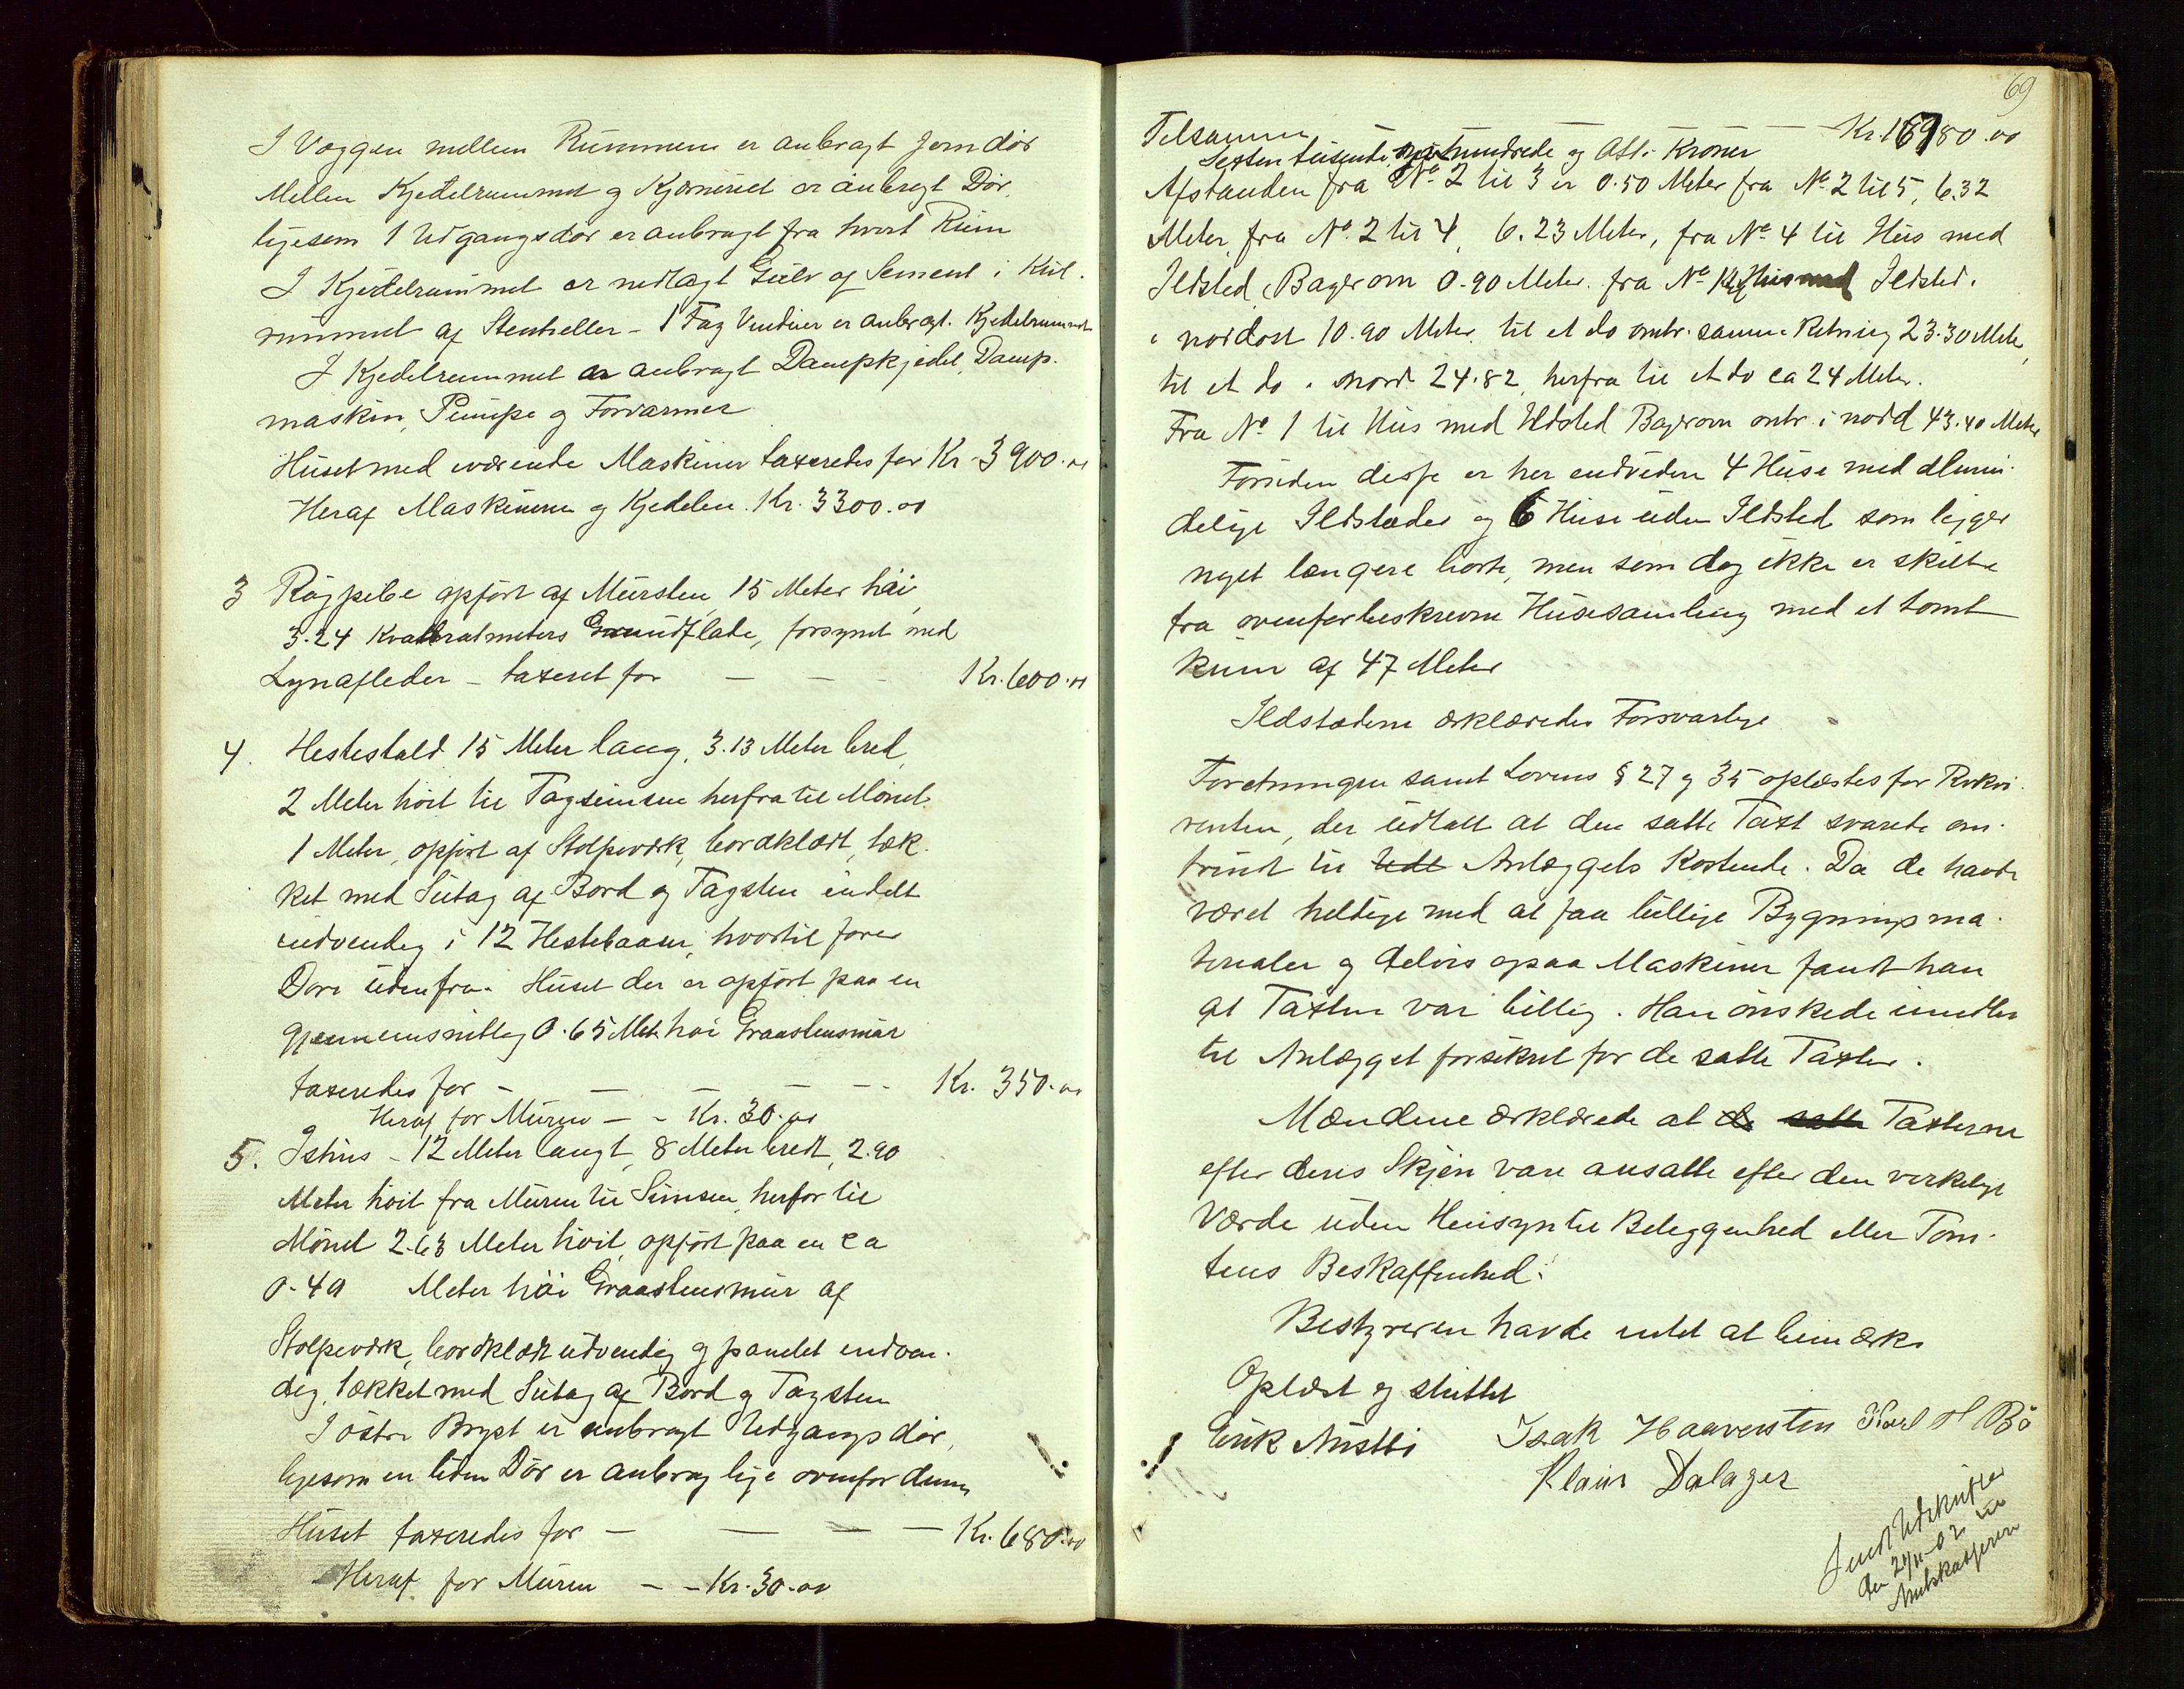 I Væggen mellem Rummene er anbragt Jerndør
Mellem Kjedelrummet og Kjørneriet er anbragt Dør,
ligesom 1 Udgangsdør er anbragt fra hvert Rum
I Kjedelrummet er nedlagt Gulv af Sement i Kul-
rummet af Stenheller - 1 Fag Vinduer er anbragt. Kjedelrummet
I Kjedelrummet er anbragt Dampkjedel, Damp-
maskin, Pumpe og Forvarmer
Huset med iværende Maskiner taxeredes for Kr. 3900.00
Heraf Maskinerne og Kjedelen. Kr. 3300.00
3 Røgpibe opført af Mursten, 15 Meter høi,
3.24 Kvadratmeters Grundflade, forsynet med
Lynafleder - taxeret for - - - Kr. 600.00
4. Hestestald 15 Meter lang, 3.13 Meter bred,
2 Meter høit til Tagsimsen herfra til Mønet
1 Meter, opført af Stolpeværk, bordklædt, tæk-
ket med Sutag af Bord og Tagsten inddelt
indvendig i 12 Hestebaaser, hvortil fører
Døre udenfra. Huset der er opført paa en
gjennemsnitlig 0.65 Meter høi Graastensmur
taxeredes for - - - - - Kr. 350.00
Heraf for Muren - - Kr. 30.00
5. Ishus - 12 Meter langt, 8 Meter bredt, 2.90
Meter høit fra Muren til Simsen, herfor til
Mønet 2.63 Meter høit, opført paa en ca
0.40 Meter høi Graastensmur af
Stolpeværk, bordklædt udvendig og panelet indven-
dig, tækket med Sutag af Bord og Tagsten
I østre Bryst er anbragt Udgangsdør,
ligesom en liden Dør er anbrag lige ovenfor denne
Huset taxeredes for - - - - Kr. 680.00
Heraf for Muren - - Kr. 30.00
69
Tilsammen - - - Kr. 16980.00
Sexten tusende nihundrede og Otti Kroner
Afstanden fra No. 2 til 3 er 0.50 Meter fra No. 2 til 5, 6.32
Meter, fra No. 2 til 4, 6.23 Meter, fra No. 4 til Hus med
Ildsted, Bagerovn 0.90 Meter. fra No Hus med Ildsted.
i nordost 10.90 Meter, til et do omtr. samme Retning 23.30 Meter,
til et do i nord 24.82, herfra til et do ca 24 Meter.
Fra No 1 til Hus med Ildsted Bagerovn omtr. i nord 43.40 Meter
Foruden disse er her endvidere 4 Huse med almin-
delige Ildstæder og 6 Huse uden Ildsted som ligger
noget længere borte, men som dog ikke er skilte
fra ovenforbeskrevne Husesamling med et tomt
Rum af 47 Meter
Ildstederne erklæredes Forsvarlige
Foretningen samt Lovens § 27 og 35 oplæstes for Rekvi-
renten, der udtalt at den satte Taxt svarede om-
trent til Anlæggets Kostende. Da de havde
været heldige med at faa billige Bygningsma-
terialer og delvis ogsaa Maskiner fandt han
at Taxten var billig. Han ønskede imidler
tid Anlægget forsikret for de satte Taxter.
Mændene erklærede at de satte Taxterne
efter deres Skjøn vare ansatte efter den virkelige
Værde uden Hensyn til Beliggenhed eller Tom-
tens Beskaffenhed.
Bestyreren havde intet at bemærke
Oplæst og sluttet
Isak Haavensten Karl H Bö
Erik
Klaus Dalager
den 29/11-02 til